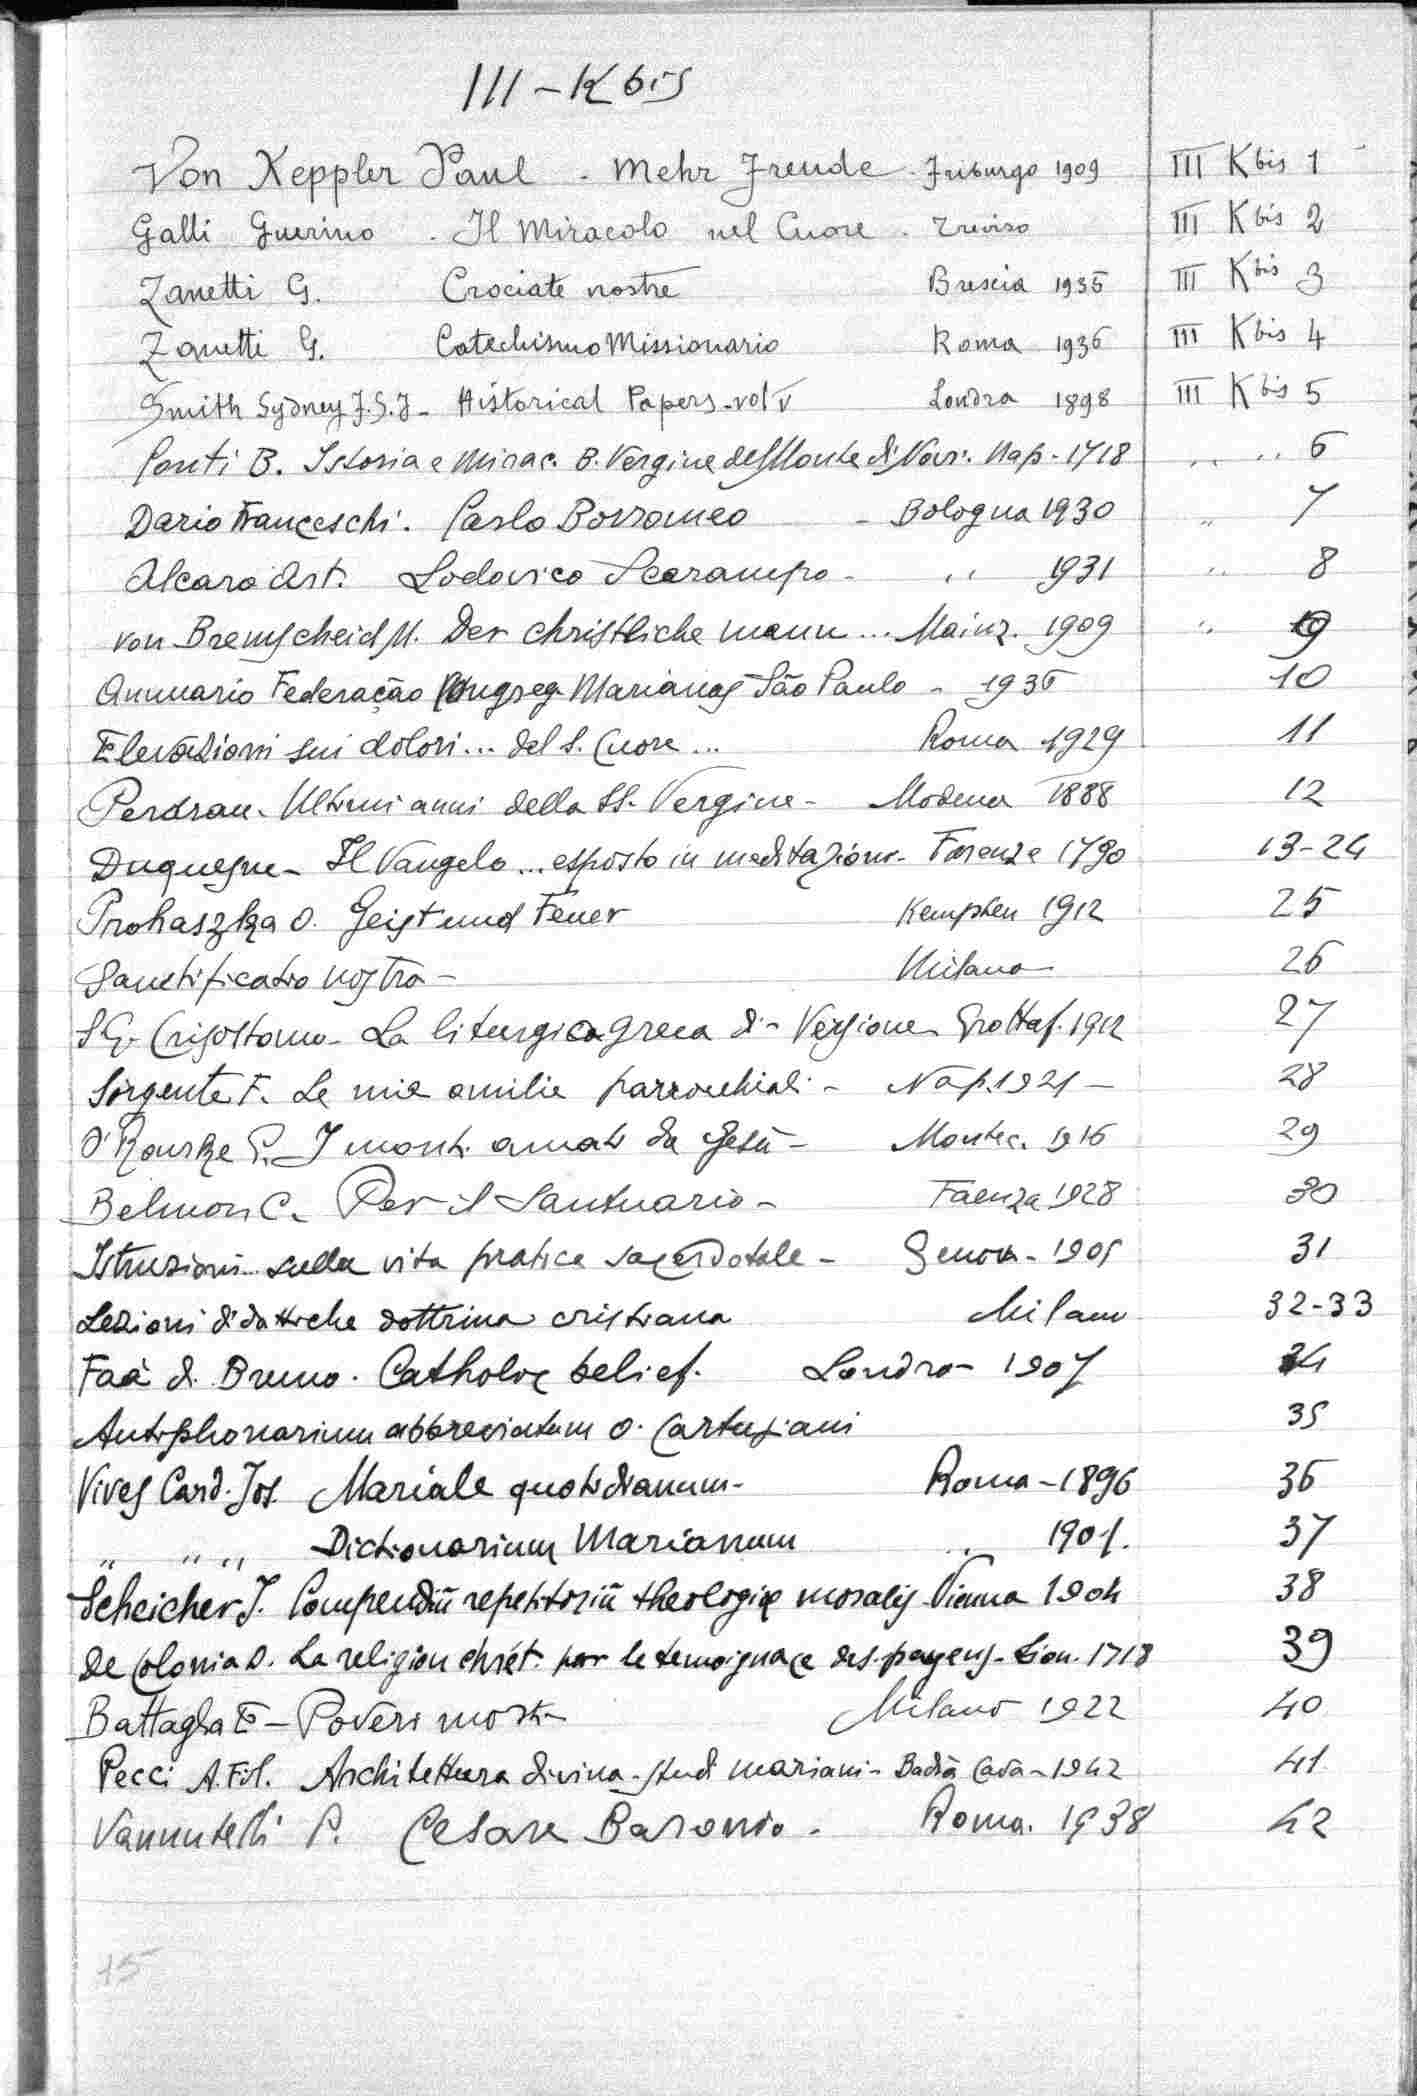 III - K bis
Von Keppler Paul - Mehr Freude - Friburgo 1909 III K bis 1
Galli Guerino - Il Miracolo nel Cuore - Treviso III K bis 2
Zanetti G. Crociate nostre Brescia 1935 III K bis 3
Zanetti G. Catechismo Missionario Roma 1936 III K bis 4
Smith Sydney F. S.J - Historical Papers - vol V Londra 1898 III K bis 5
Conti B. Istoria e Mirac. B. Vergine del Monte di Nov. Nap - 1718 " " 6
Dario Franceschi. Carlo Borromeo - Bologna 1930 " 7
Alcaro Ant. Lodovico Scarampo - " 1931 " 8
von Bremscheid M. Der christliche mann ... Mainz. 1909 " 9
Annuario Federação Congreg. Marianas São Paulo - 1935 10
Elevazioni sui dolori ... del S. Cuore ... Roma 1929 11
Perdrau - Ultimi anni della SS. Vergine - Modena 1888 12
Duquesne - Il Vangelo ... esposto in meditazioni - Firenze 1790 13-24
Prohaszka O. Geist und Feuer Kempten 1912 25
Sanctificatio nostra - Milano 26
S G. Crisostomo - La liturgica greca di - Versione Grottaf. 1912 27
Sorgente F. Le mie omilie parrocchiali - Nap. 1921 - 28
O'Rourke P. I monti amati da Gesù - Montec. 1916 29
Belmon C. Per il Santuario - Faenza 1928 30
Istruzioni sulla vita pratica sacerdotale - Genova - 1905 31
Lezioni didattiche dottrina cristiana Milano 32-33
Faà di Bruno. Catholic belief. Londra - 1907 34
Antiphonarium abbreviatum O. Cartusiani 35
Vives Card. Jos. Mariale quotidianum - Roma - 1896 36
" " " Dictionarium Marianum " 1901. 37
Scheicher J. Compendiū repetitoriū theologiæ moralis Vienna 1904 38
De Colonia D. La religion chrét. par le temoignage des payens - Lion. 1718 39
Battaglia E - Poveri morti - Milano 1922 40
Pecci A. Fil. Architettura divina - studi mariani - Badia Cava - 1942 41
Vannutelli P. Cesare Baronio. Roma. 1938 42
15